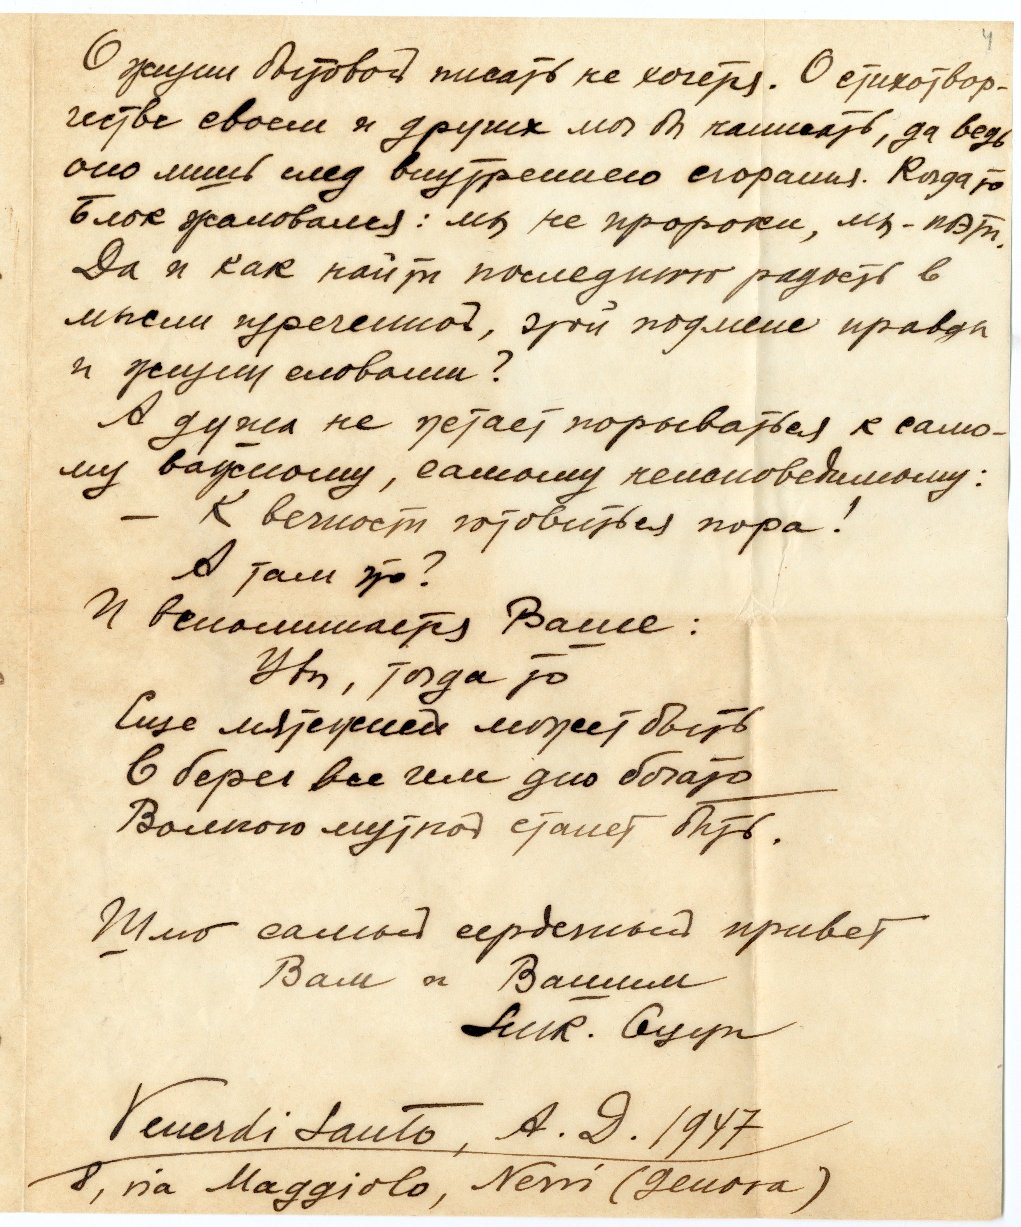 4
О жизни бытовой писать не хочется. О стихотвор-
честве своем и других мог бы написать, да ведь
оно лишь след внутреннего сгорания. Когда то
Блок жаловался: мы не пророки, мы - поэты.
Да и как найти последнюю радость в
мысли изреченной, этой подмене правды
и жизни словами?
А душа не устает порываться к само-
му важному, самому неисповедимому:
— К вечности готовиться пора!
А там что?
И вспоминается Ваше:
Увы, тогда то
Еще мятежней может быть
О берег все чем дно богато
Волною мутной станет бить.
Шлю самый сердечный привет
Вам и Вашим
Ник. Оцуп
Venerdi Santo, A. D. 1947
8, via Maggiolo, Nervi (Genova)